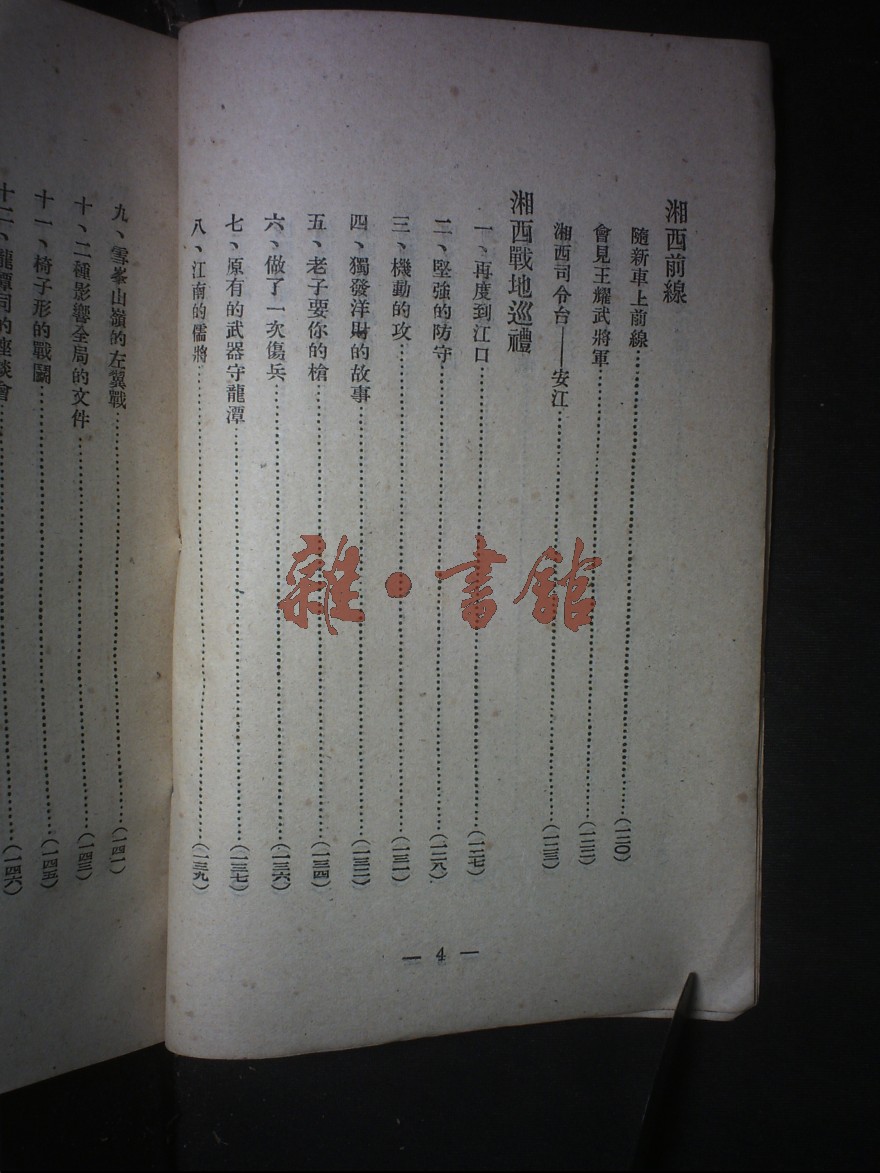 湘西前線
隨新車上前線……(一二〇)
會見王耀武將軍……(一二二)
湘西司令台——安江……(一二三)
湘西戰地巡禮
一、再度到江口……(一二七)
二、堅強的防守……(一二八)
三、機動的攻……(一三一)
四、獨發洋財的故事……(一三二)
五、老子要你的槍……(一三四)
六、做了一次傷兵……(一三六)
七、原有的武器守龍潭……(一三七)
八、江南的儒將……(一三九)
— 4 —
九、雪峯山嶺的左翼戰……(一四一)
十、二種影響全局的文件……(一四三)
十一、椅子形的戰鬪……(一四五)
十二、龍潭司的座談會……(一四六)
雜·書館